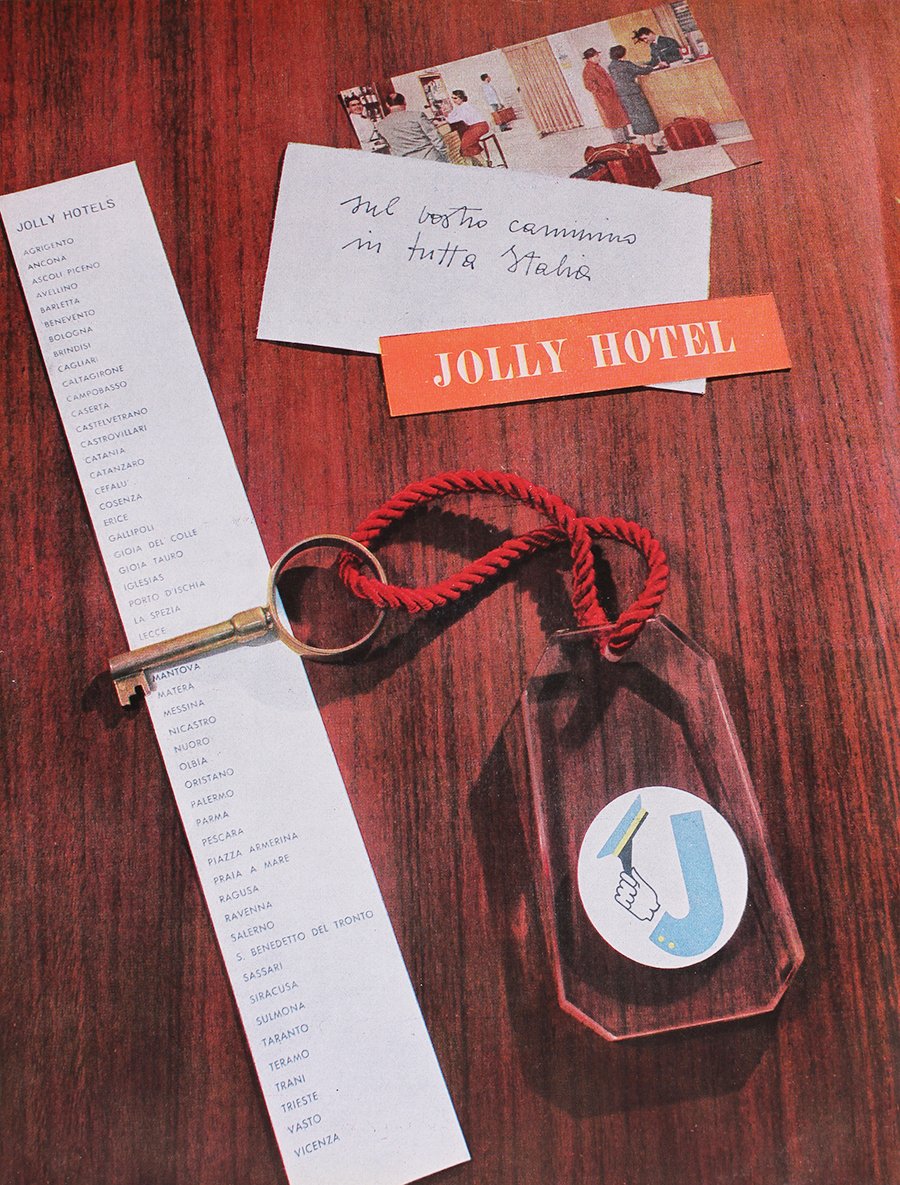 JOLLY HOTELS
AGRIGENTO
ANCONA
ASCOLI PICENO
AVELLINO
BARLETTA
BENEVENTO
BOLOGNA
BRINDISI
CAGLIARI
CALTAGIRONE
CAMPOBASSO
CASERTA
CASTELVETRANO
CASTROVILLARI
CATANIA
CATANZARO
CEFALU'
COSENZA
ERICE
GALLIPOLI
GIOIA DEL COLLE
GIOIA TAURO
IGLESIAS
PORTO D'ISCHIA
LA SPEZIA
LECCE
MANTOVA
MATERA
MESSINA
NICASTRO
NUORO
OLBIA
ORISTANO
PALERMO
PARMA
PESCARA
PIAZZA ARMERINA
PRAIA A MARE
RAGUSA
RAVENNA
SALERNO
S. BENEDETTO DEL TRONTO
SASSARI
SIRACUSA
SULMONA
TARANTO
TERAMO
TRANI
TRIESTE
VASTO
VICENZA
sul vostro cammino
in tutta Italia
JOLLY HOTEL
J